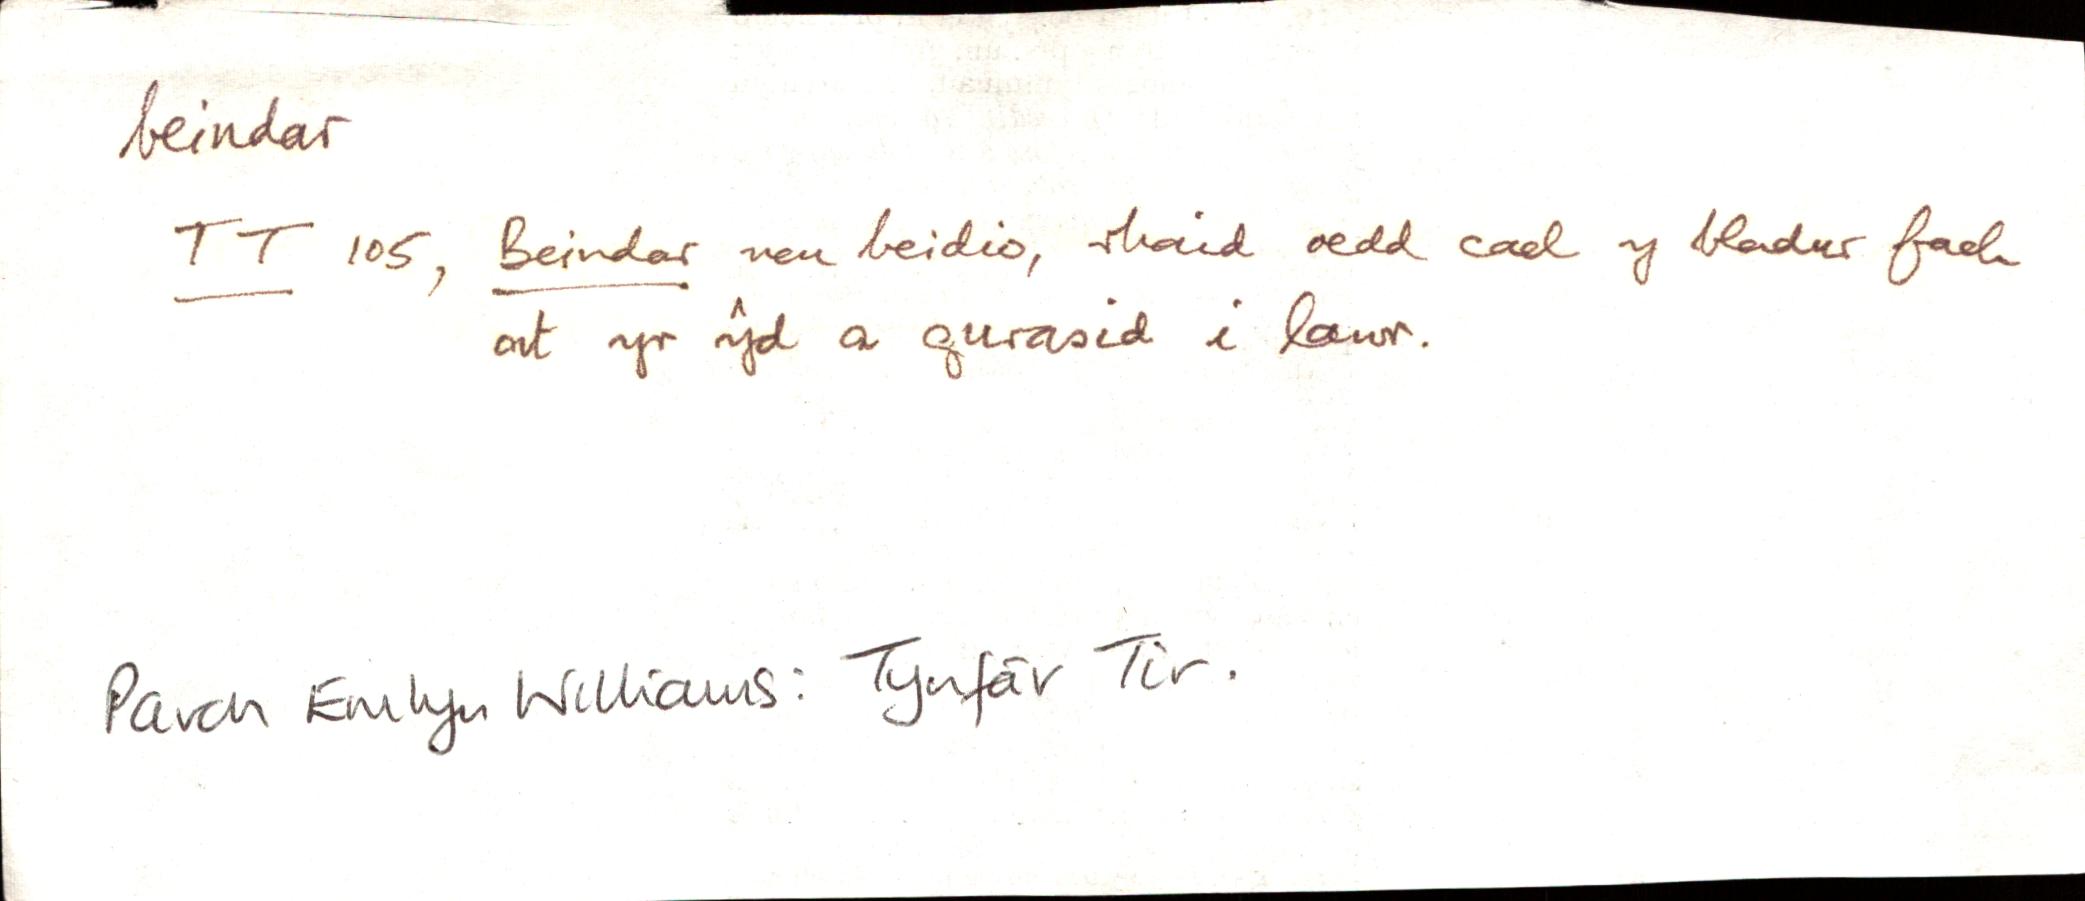 beindar
TT 105, Beindar neu beidio, rhaid oedd cael y bladur fach
at yr ŷd a gurasid i lawr.
Parch Emlyn Williams: Tynfâr Tir.